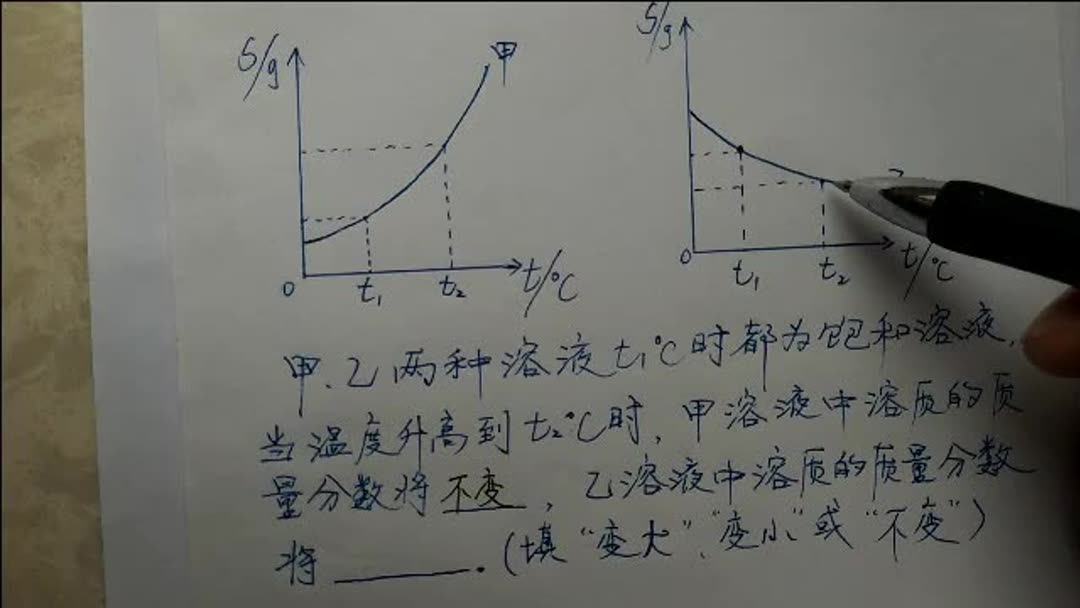 S/g
甲
t/°C
0
t₁
t₂
S/g
t/°C
0
t₁
t₂
甲、乙两种溶液t₁°C时都为饱和溶液,
当温度升高到t₂°C时,甲溶液中溶质的质
量分数将不变,乙溶液中溶质的质量分数
将______.(填“变大”、“变小”或“不变”)